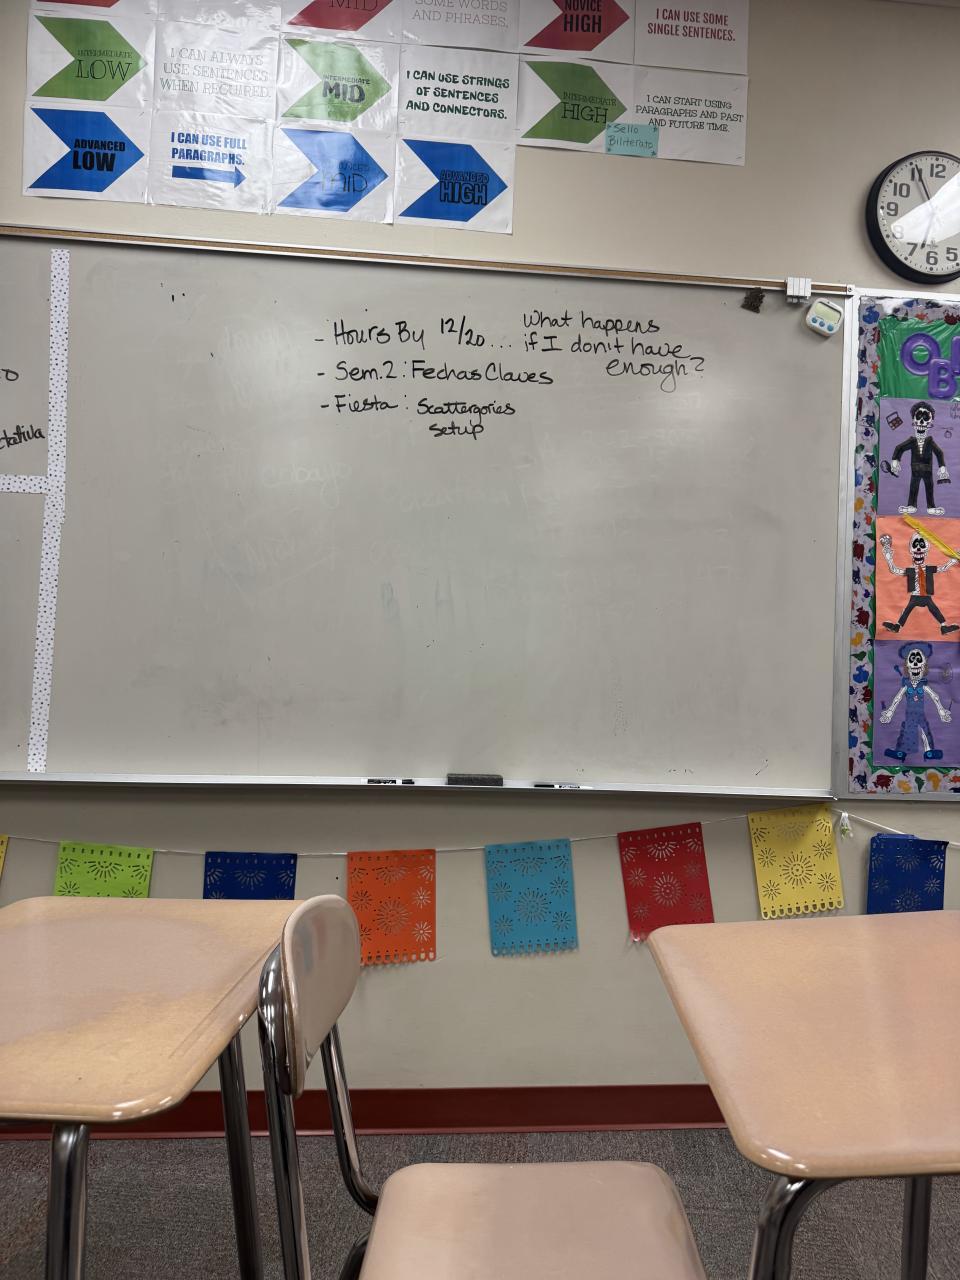 MID
SOME WORDS
AND PHRASES.
NOVICE
HIGH
I CAN USE SOME
SINGLE SENTENCES.
INTERMEDIATE
LOW
I CAN ALWAYS
USE SENTENCES
WHEN REQUIRED.
INTERMEDIATE
MID
I CAN USE STRINGS
OF SENTENCES
AND CONNECTORS.
INTERMEDIATE
HIGH
Sello
Biliterato
I CAN START USING
PARAGRAPHS AND PAST
AND FUTURE TIME.
ADVANCED
LOW
I CAN USE FULL
PARAGRAPHS.
ADVANCED
MID
ADVANCED
HIGH
12
11
10
9
8
7
6
5
- Hours By 12/20... What happens
if I don't have
enough?
- Sem. 2: Fechas Claves
- Fiesta: Scattergories
setup